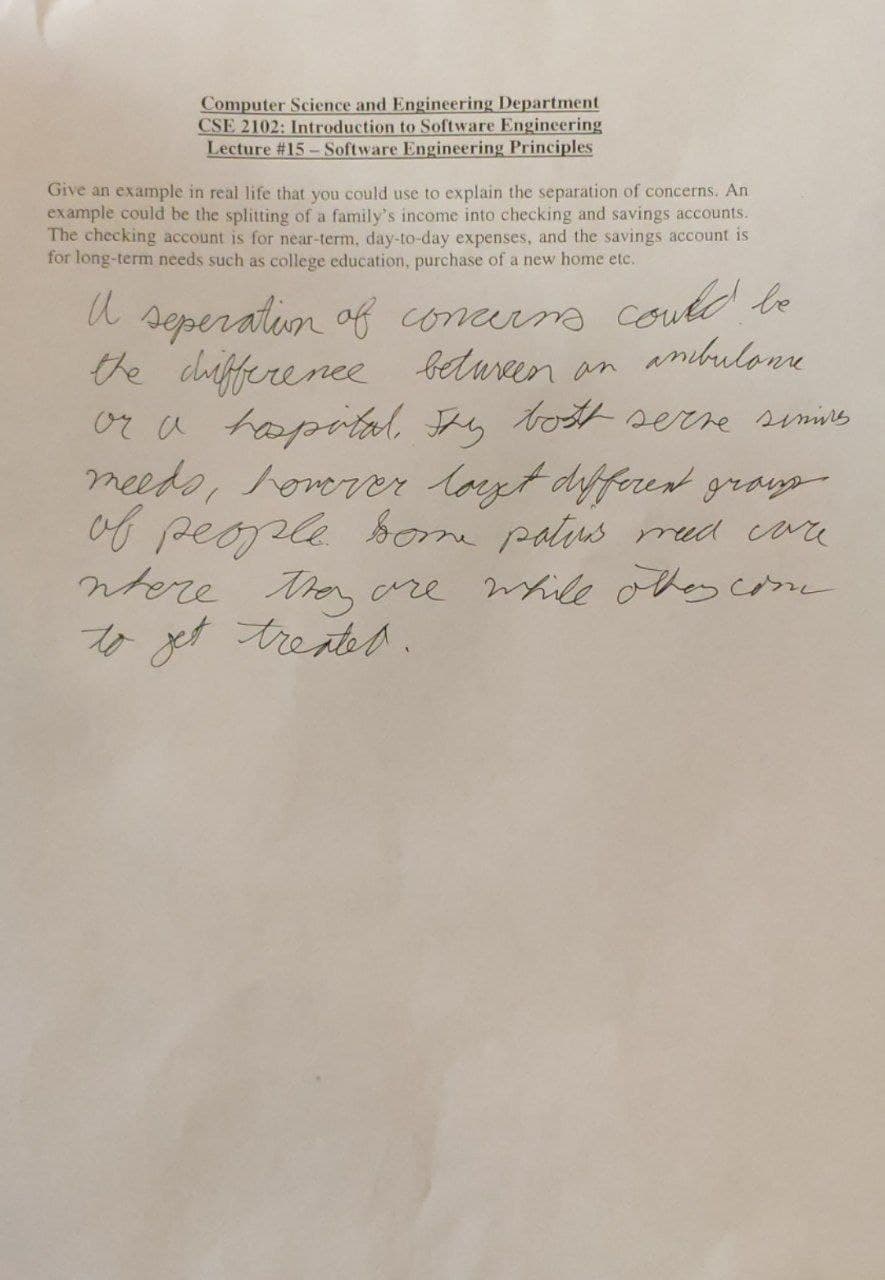 Computer Science and Engineering Department
CSE 2102: Introduction to Software Engineering
Lecture #15 – Software Engineering Principles
Give an example in real life that you could use to explain the separation of concerns. An
example could be the splitting of a family's income into checking and savings accounts.
The checking account is for near-term, day-to-day expenses, and the savings account is
for long-term needs such as college education, purchase of a new home etc.
A seperation of concerns could be
the difference between an ambulance
or a hospital. They both serve similar
needs, however target different groups
of people. Some need care
where they are while others come
to get treated.